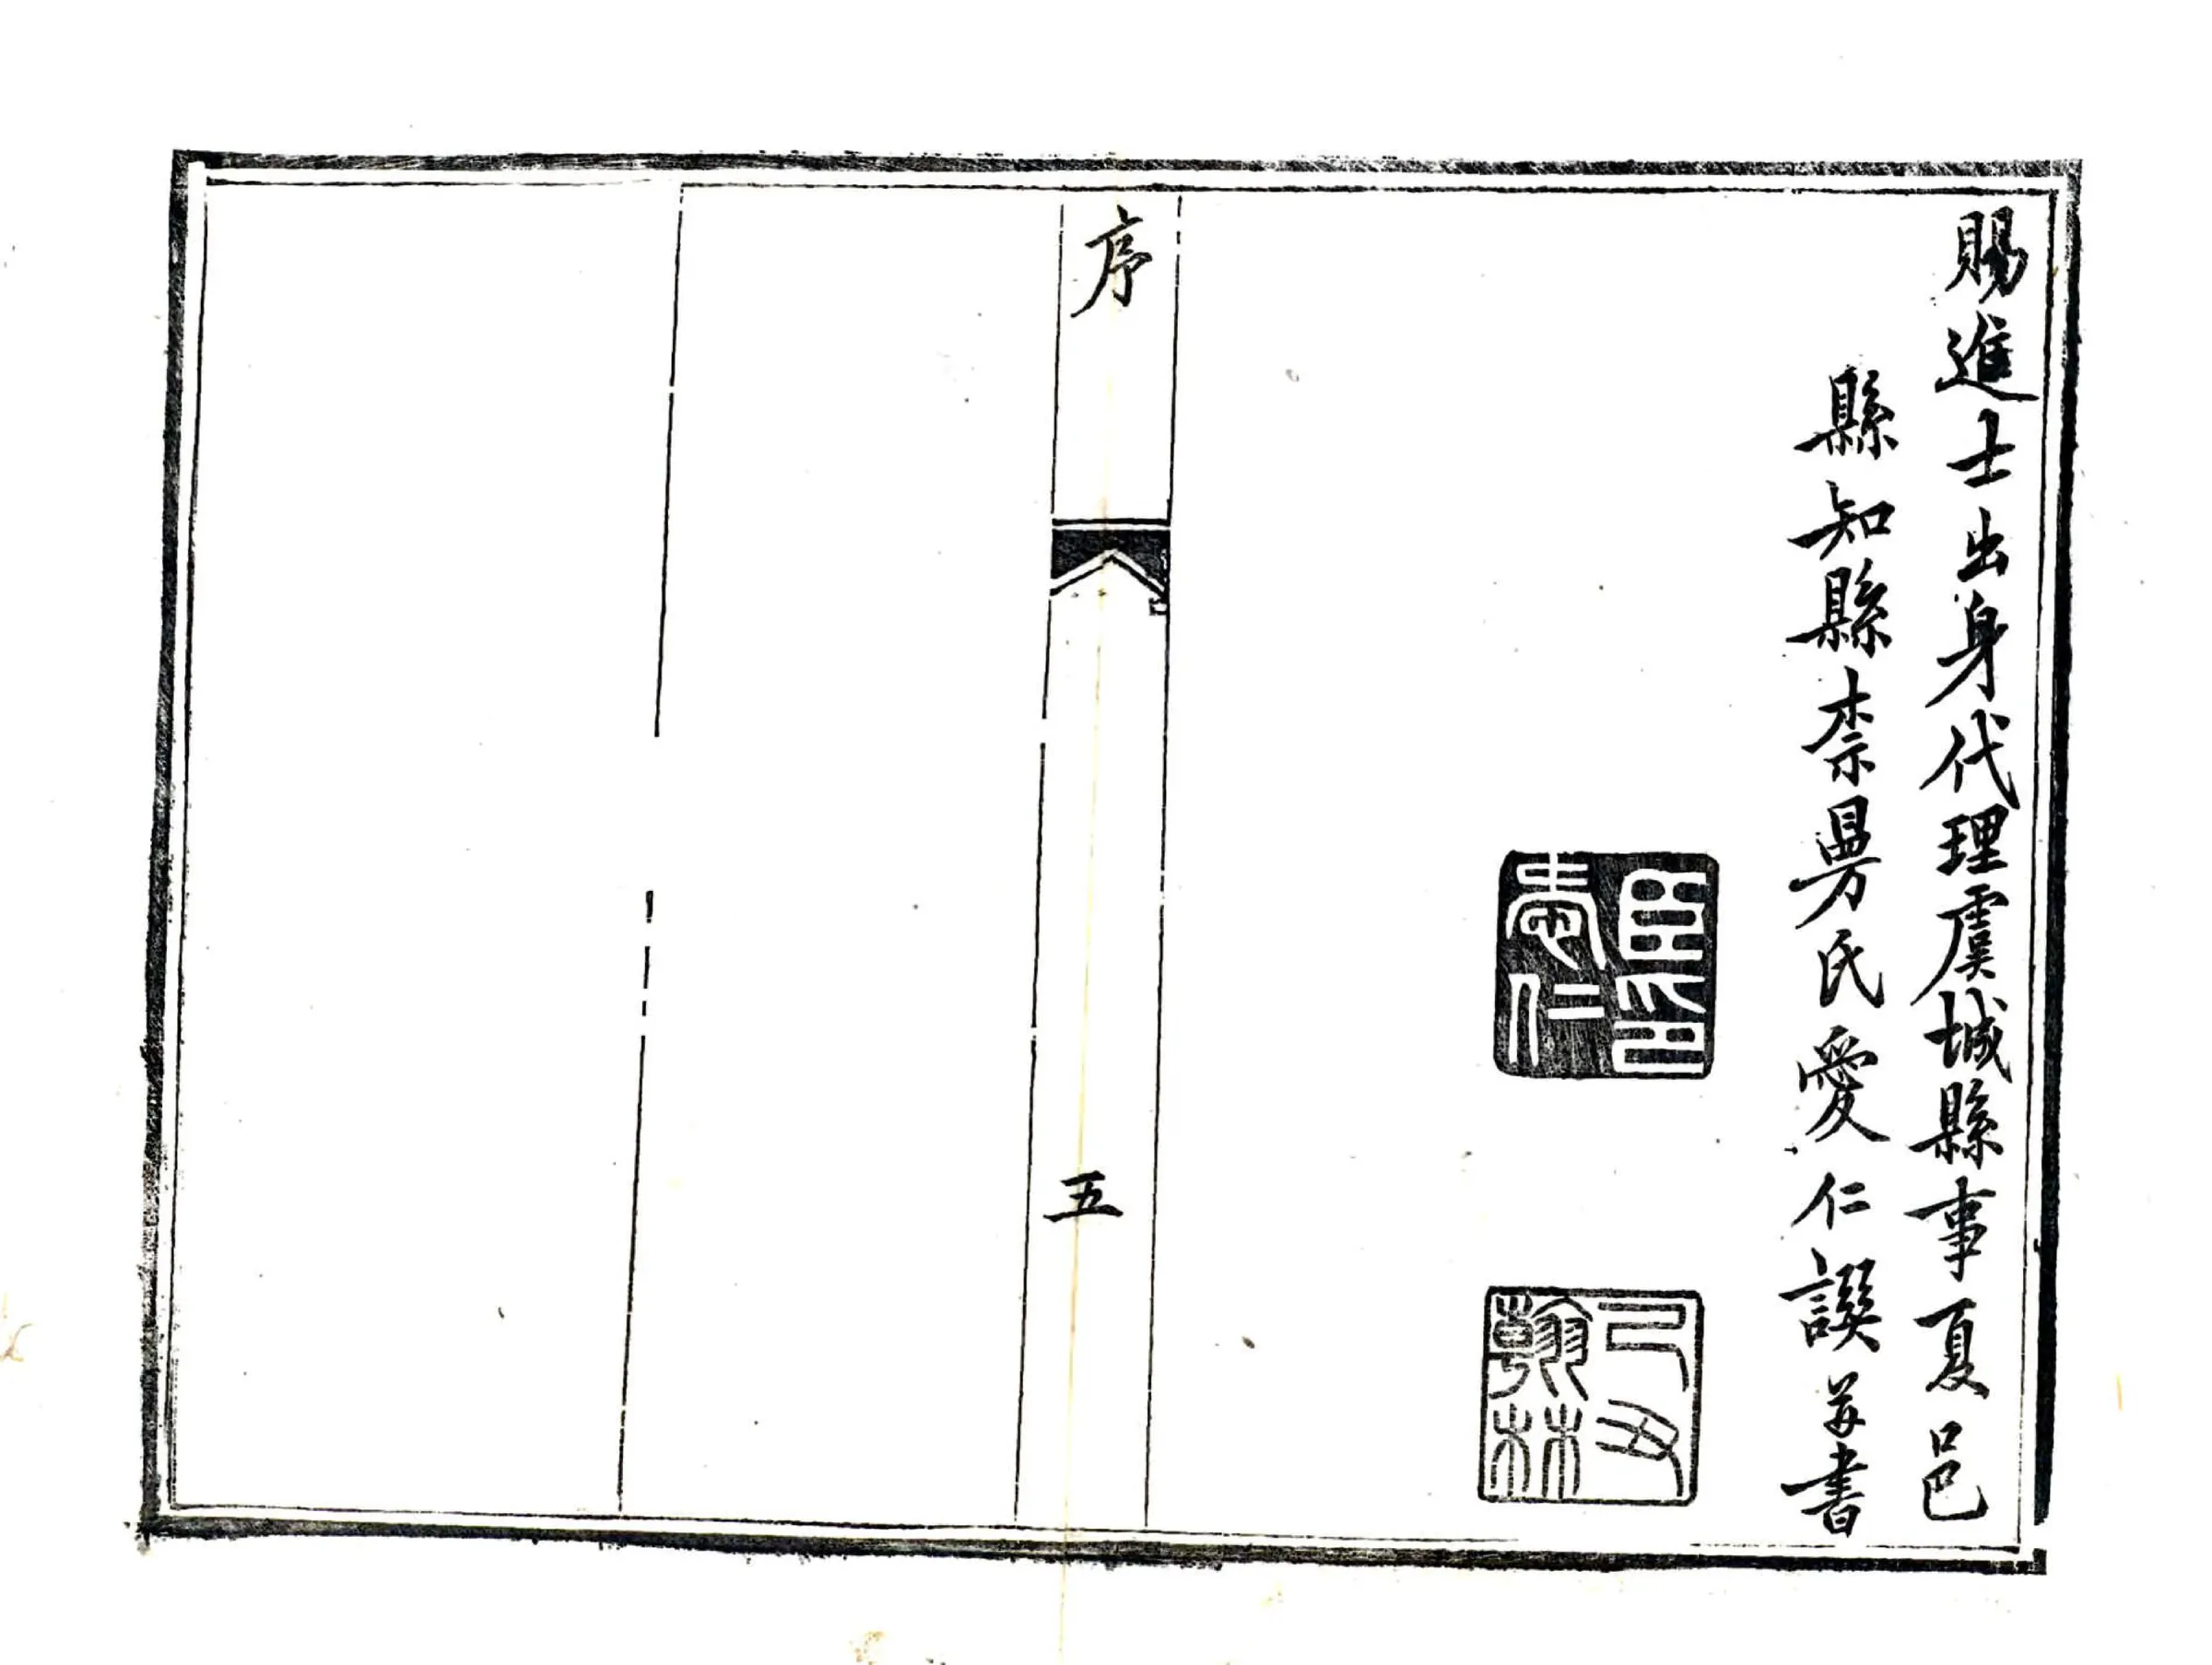 賜進士出身代理虞城縣事夏邑
縣知縣柰曼氏愛仁譔并書
臣印
愛仁
己丑
翰林
序
五